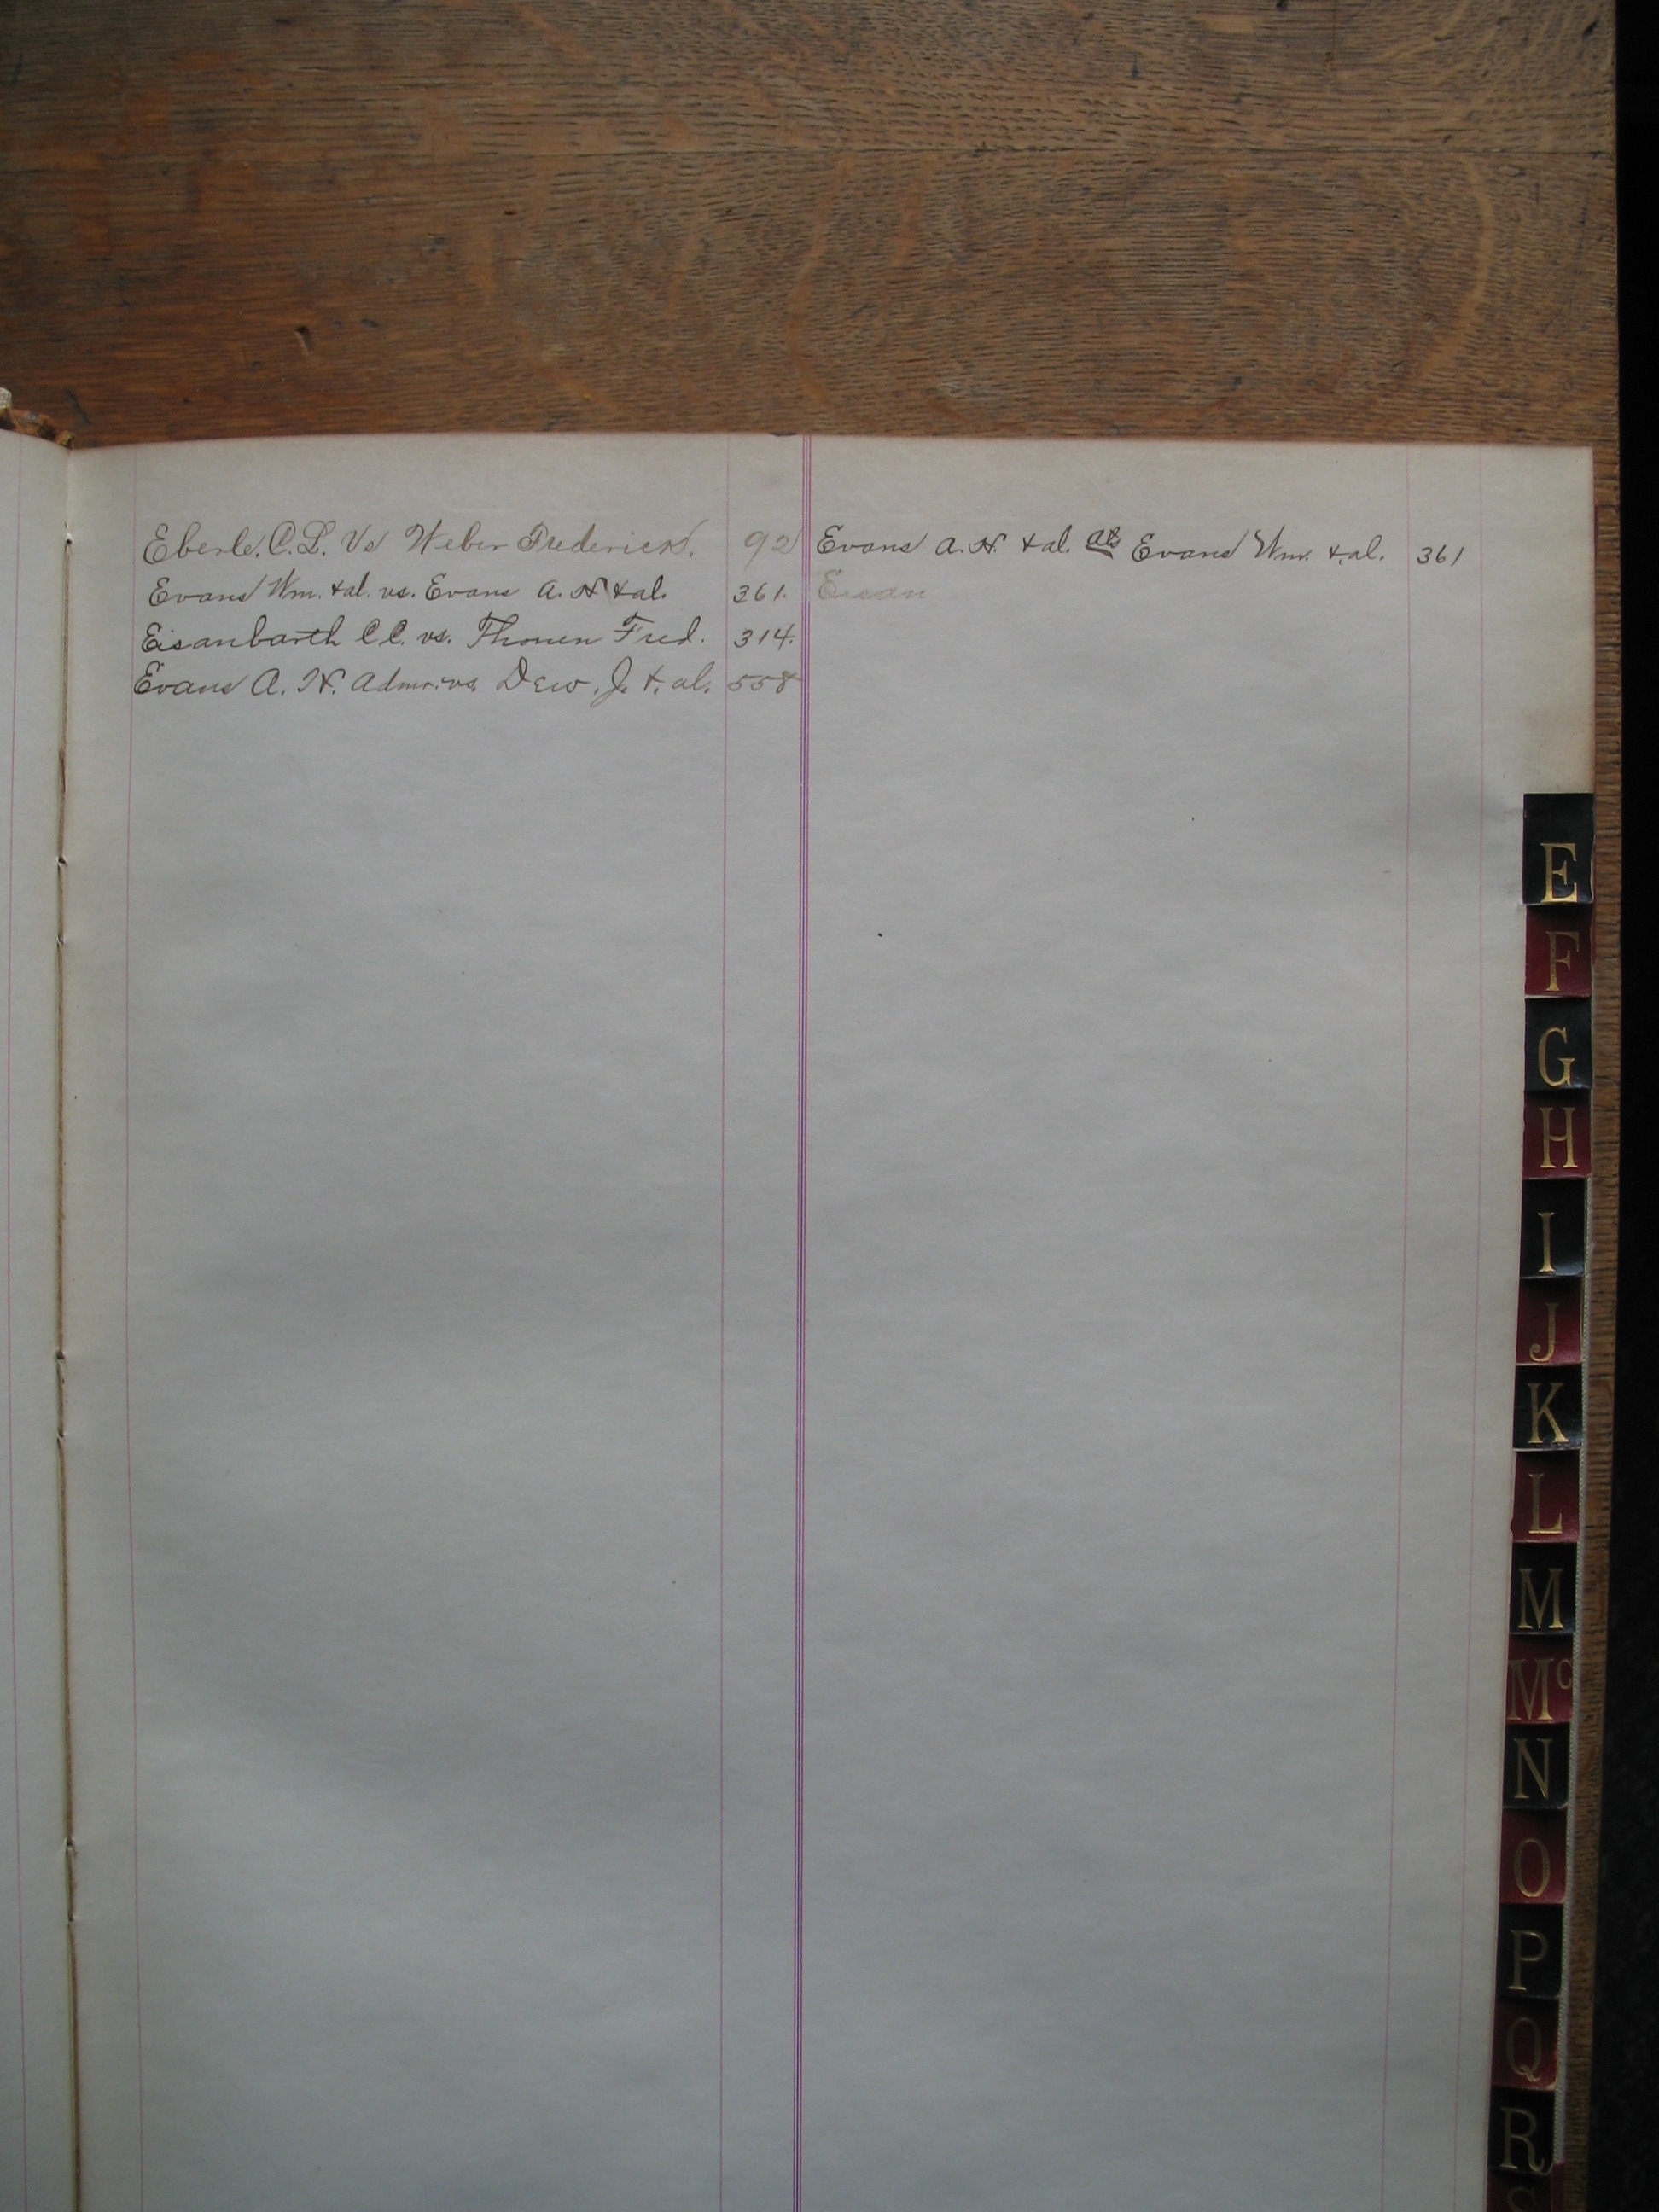 Eberle, C. L. Vs Weber Frederick. 92
Evans Wm. & al. vs. Evans A. H & al. 361.
Eisanbarth C C. vs. Thonen Fred. 314.
Evans A. H. Admr. vs. Dew. J. & al. 558
Evans A. H. & al. ats Evans Wm. & al. 361
Eisan
E
F
G
H
I
J
K
L
M
Mc
N
O
P
Q
R